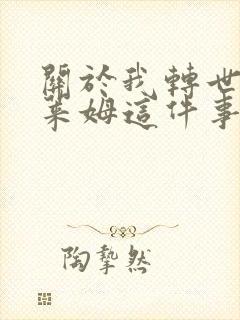 關於我轉世
萊姆這件事
陶摯然